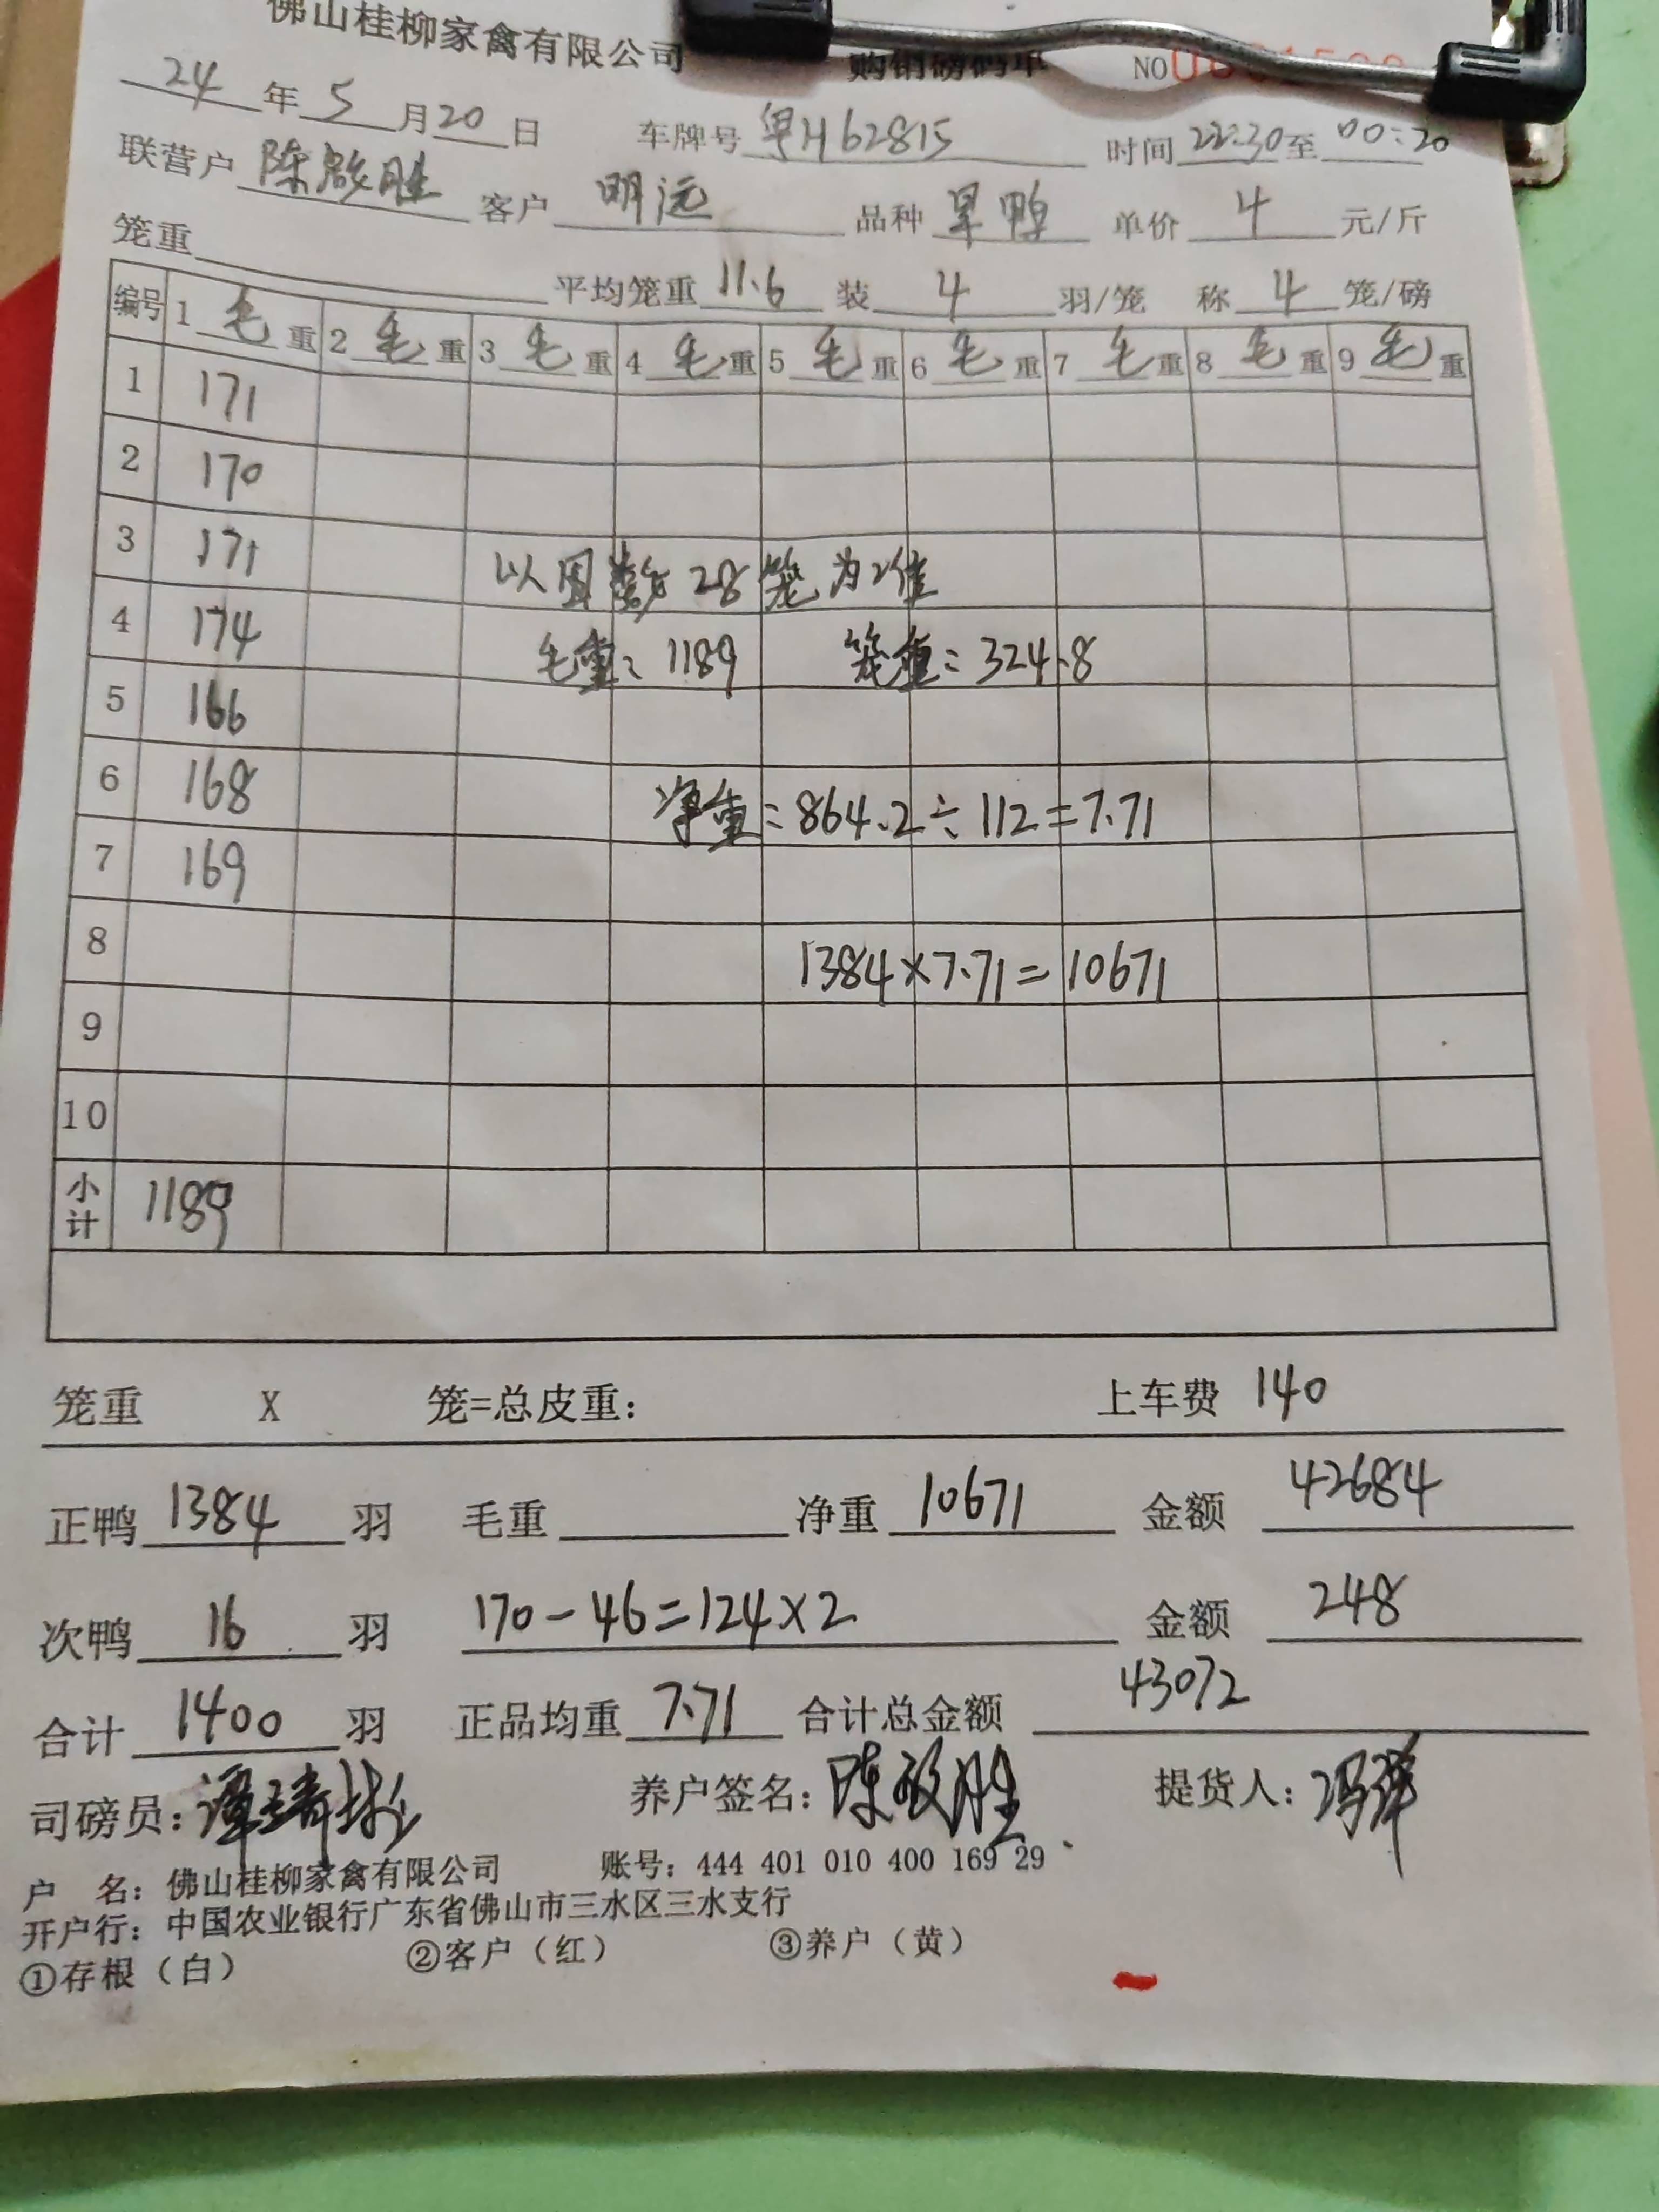 佛山桂柳家禽有限公司 购销磅码单 NO
24 年 5 月 20 日 车牌号 粤H62815 时间 22:30 至 00:20
联营户 陈 胜 客户 明远 品种 旱鸭 单价 4 元/斤
笼重 平均笼重 11.6 装 4 羽/笼 称 4 笼/磅
编号 1 毛 重 2 毛 重 3 毛 重 4 毛 重 5 毛 重 6 毛 重 7 毛 重 8 毛 重 9 毛 重
1 171
2 170
3 171 以 数 28 笼为准
4 174 毛重: 1189 笼重: 324.8
5 166
6 168 净重: 864.2÷112=7.71
7 169
8 1384×7.71=10671
9
10
小计 1189
笼重 X 笼=总皮重: 上车费 140
正鸭 1384 羽 毛重 净重 10671 金额 42684
次鸭 16 羽 170-46=124×2 金额 248
合计 1400 羽 正品均重 7.71 合计总金额 43072
司磅员: 养户签名: 陈 胜 提货人: 冯
户 名: 佛山桂柳家禽有限公司 账号: 444 401 010 400 169 29
开户行: 中国农业银行广东省佛山市三水区三水支行
①存根(白) ②客户(红) ③养户(黄)